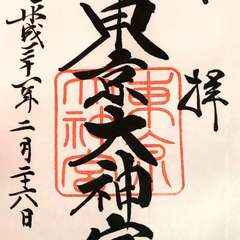 拝
東京大神宮
平成三十一年二月二十八日
東京
大神宮